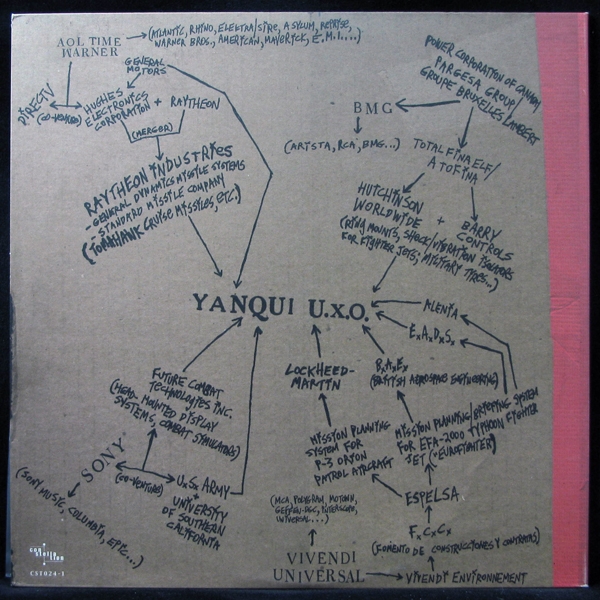 AOL TIME
WARNER
(ATLANTIC, RHINO, ELEKTRA/SIRE, ASYLUM, REPRISE,
WARNER BROS., AMERICAN, MAVERICK, E.M.I....)
GENERAL
MOTORS
DIRECTV
(CO-VENTURE)
HUGHES
ELECTRONICS
CORPORATION
+ RAYTHEON
(MERGER)
RAYTHEON INDUSTRIES
- GENERAL DYNAMICS MISSILE SYSTEMS
- STANDARD MISSILE COMPANY
(TOMAHAWK CRUISE MISSILES, ETC.)
POWER CORPORATION OF CANADA/
PARGESA GROUP/
GROUPE BRUXELLES LAMBERT
BMG
(ARISTA, RCA, BMG...)
TOTALFINAELF/
ATOFINA
HUTCHINSON
WORLDWIDE
+ BARRY
CONTROLS
(RING MOUNTS, SHOCK/VIBRATION ISOLATORS
FOR FIGHTER JETS; MILITARY TYRES...)
YANQUI U.X.O.
ALENIA
E.A.D.S.
LOCKHEED-
MARTIN
B.A.E.
(BRITISH AEROSPACE ENGINEERING)
FUTURE COMBAT
TECHNOLOGIES INC.
(HEAD-MOUNTED DISPLAY
SYSTEMS, COMBAT SIMULATORS)
MISSION PLANNING
SYSTEM FOR
P-3 ORION
PATROL AIRCRAFT
MISSION PLANNING/BRIEFING SYSTEM
FOR EFA-2000 TYPHOON FIGHTER
JET ("EUROFIGHTER")
SONY
(SONY MUSIC, COLUMBIA, EPIC...)
(CO-VENTURE)
U.S. ARMY
+
UNIVERSITY
OF SOUTHERN
CALIFORNIA
ESPELSA
F.C.C.
(FOMENTO DE CONSTRUCCIONES Y CONTRATAS)
(MCA, POLYGRAM, MOTOWN,
GEFFEN-DGC, INTERSCOPE,
UNIVERSAL...)
VIVENDI
UNIVERSAL
VIVENDI ENVIRONNEMENT
con
stella
tion
CST024-1